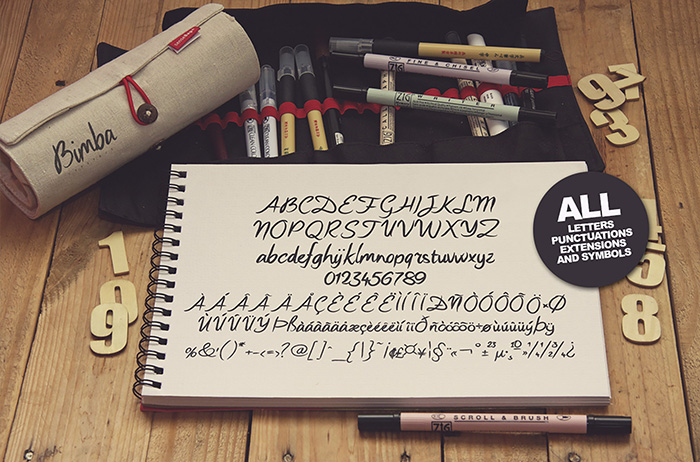 Bimba
FINE & CHISEL
ZIG
ZIG
WRITER
ABCDEFGHIJKLM
NOPQRSTUVWXYZ
abcdefghijklmnopqrstuvwxyz
0123456789
ALL
LETTERS
PUNCTUATIONS
EXTENSIONS
AND SYMBOLS
ÀÁÂÃÄÅÇÈÉÊËÌÍÎÏÐÑÒÓÔÕÖ×Ø
ÙÚÛÜÝÞßàáâãäåæçèéêëìíîïðñòóôõö÷øùúûüýþÿ
%&'()*+-<=>?@[]^_{|}~¡¢£¤¥¦§¨«¬°±²³µ·¹º»¼½¾¿
SCROLL & BRUSH
ZIG
1
0
9
9
2
3
5
0
8